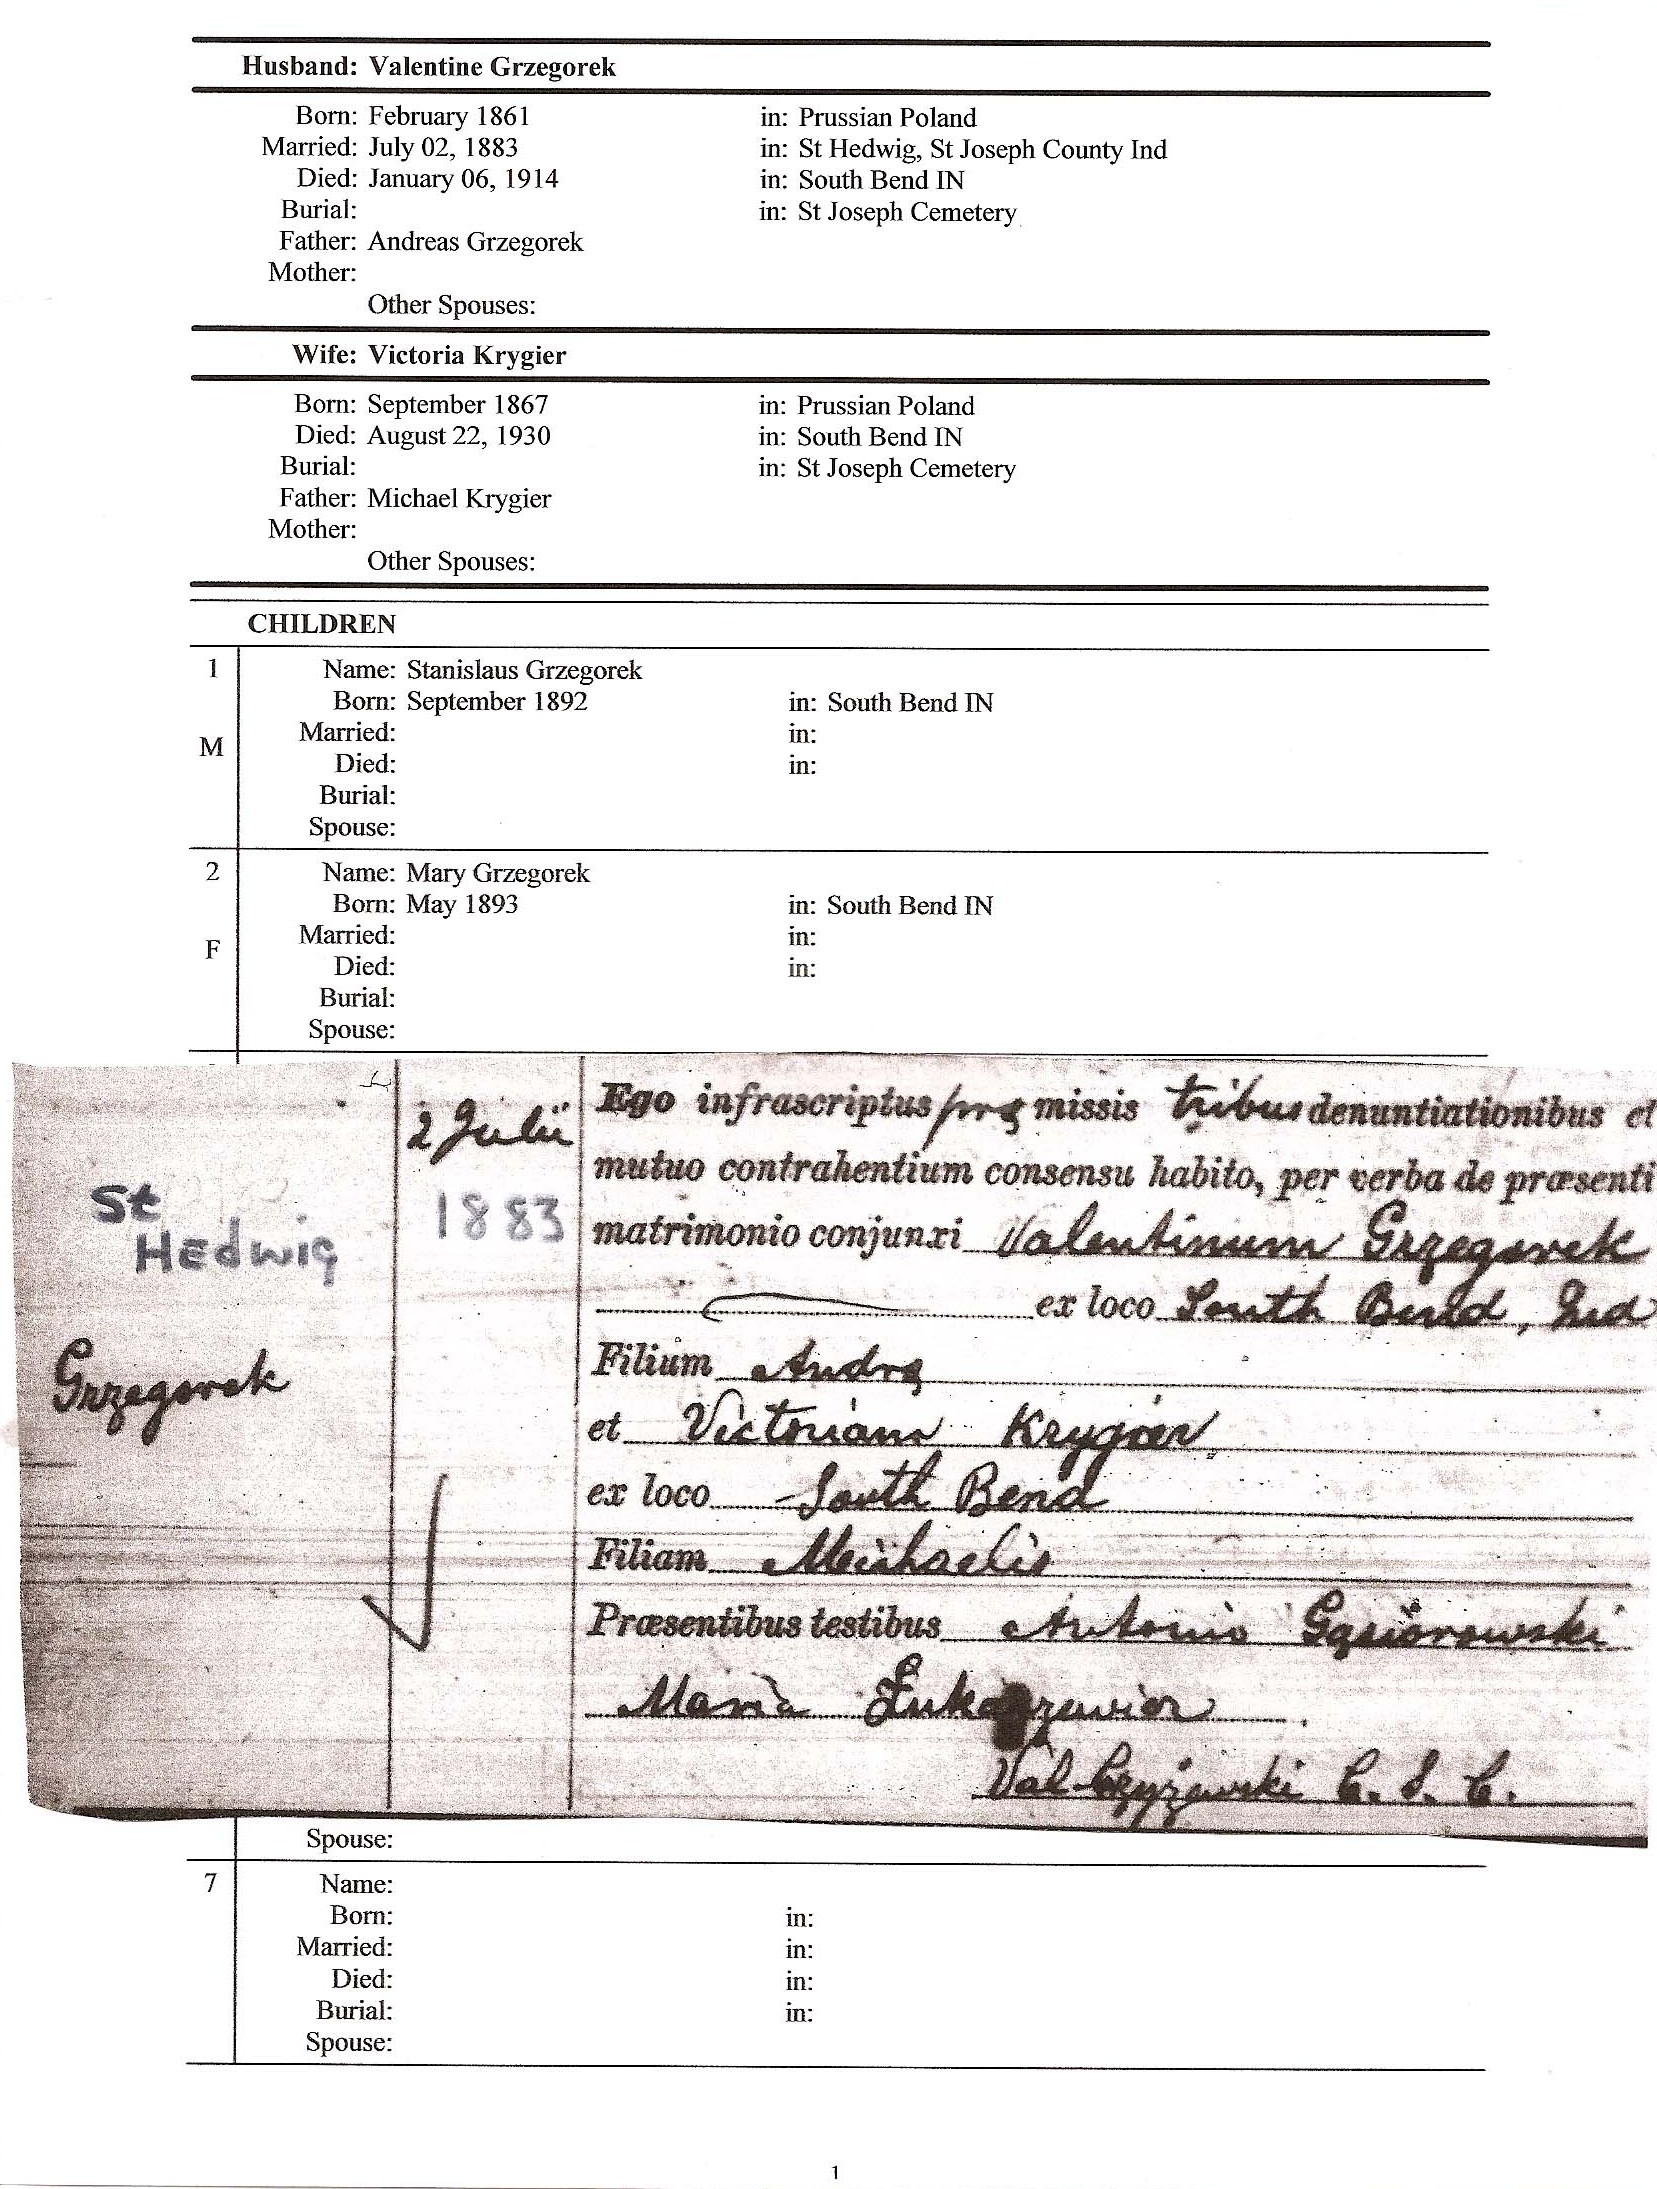 Husband: Valentine Grzegorek
Born: February 1861 in: Prussian Poland
Married: July 02, 1883 in: St Hedwig, St Joseph County Ind
Died: January 06, 1914 in: South Bend IN
Burial: in: St Joseph Cemetery
Father: Andreas Grzegorek
Mother:
Other Spouses:
Wife: Victoria Krygier
Born: September 1867 in: Prussian Poland
Died: August 22, 1930 in: South Bend IN
Burial: in: St Joseph Cemetery
Father: Michael Krygier
Mother:
Other Spouses:
CHILDREN
1 Name: Stanislaus Grzegorek
Born: September 1892 in: South Bend IN
M Married: in:
Died: in:
Burial:
Spouse:
2 Name: Mary Grzegorek
Born: May 1893 in: South Bend IN
F Married: in:
Died: in:
Burial:
Spouse:
St
Hedwig
Grzegorek
2 Julii
1883
Ego infrascriptus præmissis tribus denuntiationibus et
mutuo contrahentium consensu habito, per verba de præsenti
matrimonio conjunxi Valentinum Grzegorek
ex loco South Bend, Ind
Filium Andrę
et Victoriam Krygier
ex loco South Bend
Filiam Michaelis
Præsentibus testibus Antonio Gąsiorowski
Maria
Val Czyżewski C. S. C.
Spouse:
7 Name:
Born: in:
Married: in:
Died: in:
Burial: in:
Spouse:
1